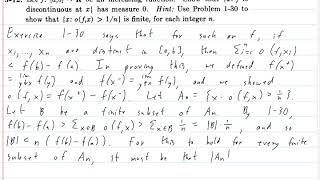 discontinuous at x} has measure 0. Hint: Use Problem 1-30 to
show that {x: o(f,x) > 1/n} is finite, for each integer n.
Exercise 1-30 says that for such an f, if
x₁,..., xₙ are distinct in [a,b], then Σⁿᵢ₌₁ o(f,xᵢ)
< f(b) - f(a). In proving this, we defined f(x⁺) =
lim y↓x f(y) and f(x⁻) = lim y↑x f(y), and we showed
o(f,x) = f(x⁺) - f(x⁻). Let Aₙ = {x: o(f,x) > 1/n}.
Let B be a finite subset of Aₙ. By 1-30,
f(b) - f(a) > Σx∈B o(f,x) > Σx∈B 1/n = |B| 1/n, and so
|B| < n (f(b) - f(a)). For this to hold for every finite
subset of Aₙ, it must be that |Aₙ|